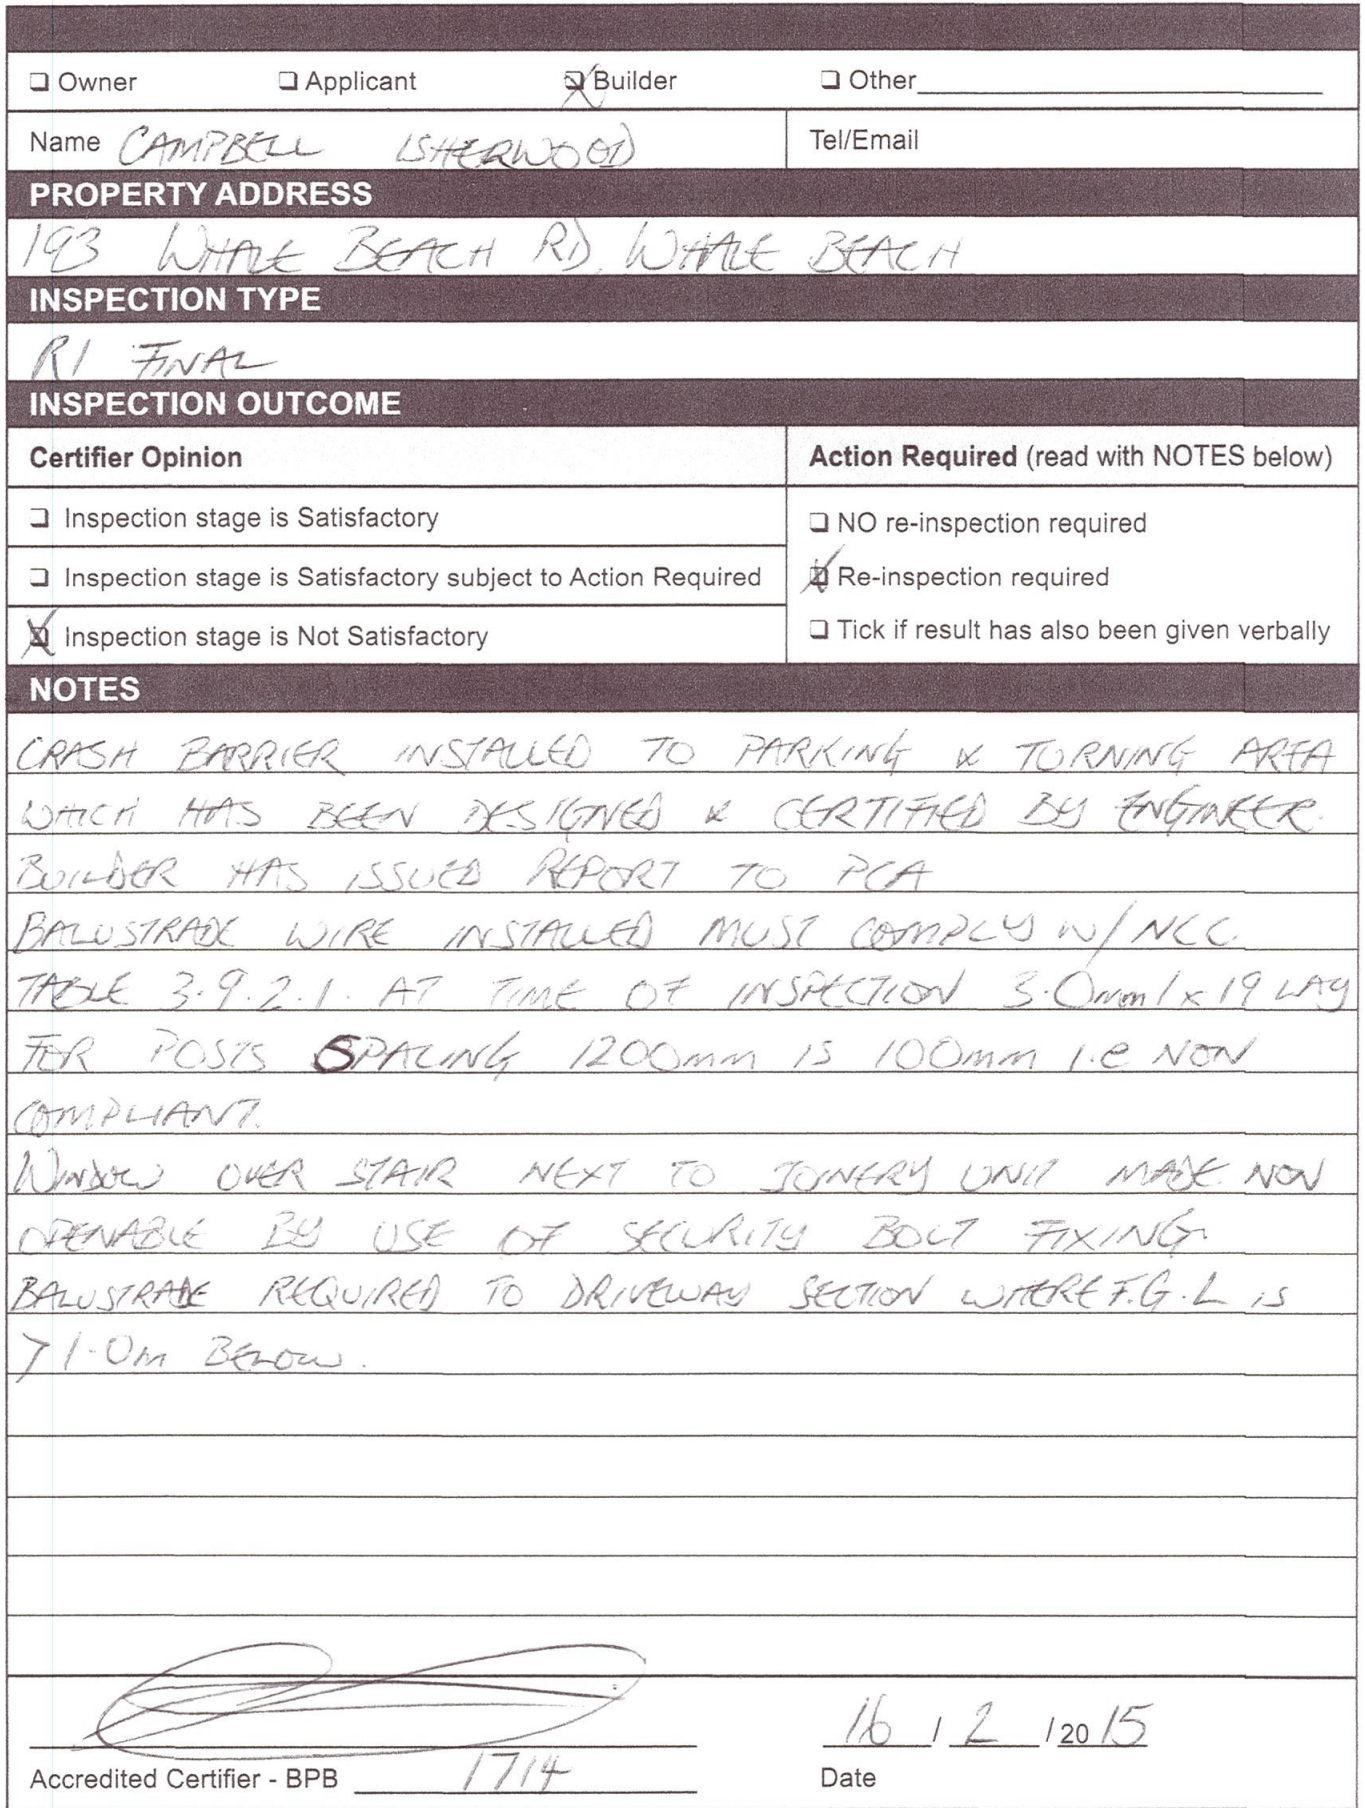 ❑ Owner ❑ Applicant ☒ Builder ❑ Other
Name CAMPBELL ISHERWOOD Tel/Email
PROPERTY ADDRESS
193 WHALE BEACH RD, WHALE BEACH
INSPECTION TYPE
RI FINAL
INSPECTION OUTCOME
Certifier Opinion Action Required (read with NOTES below)
❑ Inspection stage is Satisfactory
❑ NO re-inspection required
❑ Inspection stage is Satisfactory subject to Action Required
☒ Re-inspection required
☒ Inspection stage is Not Satisfactory
❑ Tick if result has also been given verbally
NOTES
CRASH BARRIER INSTALLED TO PARKING & TURNING AREA
WHICH HAS BEEN DESIGNED & CERTIFIED BY ENGINEER.
BUILDER HAS ISSUED REPORT TO PCA
BALUSTRADE WIRE INSTALLED MUST COMPLY W/ NCC
TABLE 3.9.2.1. AT TIME OF INSPECTION 3.0mm 1x19 LAY
FOR POSTS SPACING 1200mm IS 100mm i.e NON
COMPLIANT.
WINDOW OVER STAIR NEXT TO JOINERY UNIT MADE NON
OPENABLE BY USE OF SECURITY BOLT FIXING.
BALUSTRADE REQUIRED TO DRIVEWAY SECTION WHERE F.G.L IS
>1.0m BELOW.
16 / 2 / 20 15
Accredited Certifier - BPB 1714 Date